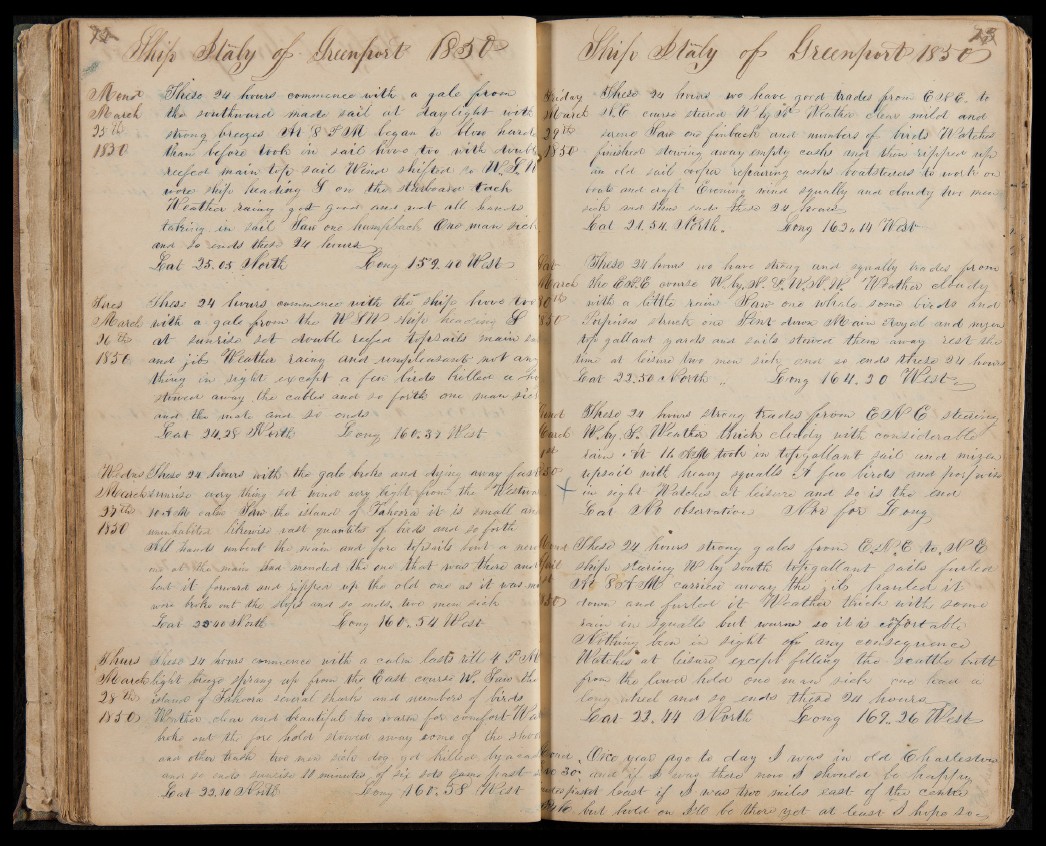 72
Ship Italy of Greenport 1850
Mond These 24 hours commence with a gale from
March the southward made sail at daylight with
25th strong breezes At 8 PM began to blow hard
1850 than before took in sail hove too with double
reefed main top sail Wind shifted to
wore ship heading S on the starboard tack
Weather rainy got good and wet all hands
taking in sail Saw one humpback One man sick
and so ends these 24 hours
Lat 25.05 North Long 159.40 West
Tues These 24 hours commence with the ship hove too
March with a gale from the WSW ship heading S
26th at sunrise set double reefed topsails main
1850 and jib Weather rainy and unpleasant not any
thing in sight except a few birds killed a
stowed away the cables and so forth one man sick
and the mate and so ends
Lat 24.28 North Long 160.37 West
Wednes These 24 hours with the gale broke and dying away fast
March sunrise every thing set wind very light from the Western
27th 10 AM calm Saw the island of Tahoora it is small and
1850 uninhabited likewise vast quantities of birds and so forth
All hands unbent the main and fore topsails bent a new
one on the main and mended the one that was there and
bent it forward and ripped up the old one as it was
worn broke out the slops and so ends two men sick
Lat 22.40 North Long 160.54 West
Thurs These 24 hours commence with a calm lasts till 4 PM
March light breeze sprang up from the East course W. Saw the
28th island of Tahoora several sharks and numbers of birds
1850 Weather clear and beautiful too warm for comfort
broke out the fore hold stowed away some of the
and other trade two men sick dog got killed by a
and so ends sunrise 10 minutes of six sets same past
Lat 22.10 North Long 160.58 West
73
Ship Italy of Greenport 1850
Friday These 24 hours we have good trades from ENE. to
March NE course steered W by N Weather clear mild and
29th serene Saw one finback and numbers of birds Watches
1850 finished stowing away empty casks and then ripped up
an old sail cooper repairing casks boatsteerers to work on
boats and craft Evening wind squally and cloudy two men
sick and thus ends these 24 hours
Lat 21.54 North. Long 162.14 West
These 24 hours we have strong and squally trades from
March the ENE course Weather cloudy
with a little rain Saw one whale some birds and
Porpoises struck one Sent down Main Royal and mizen
top gallant yards and sails stowed them away rest the
time at leisure two men sick and so ends these 24 hours
Lat 22.50 North Long 164.30 West
These 24 hours strong trades from ENE steering
March W. by S. Weather thick cloudy with considerable
rain At 11 AM took in topgallant sail and mizen
topsail with heavy squalls A few birds and porpoises
in sight Watches at leisure and so is the end
Lat No observation Nor for Long
These 24 hours strong gales from ENE to NE
ship steering W by south topgallant sails furled
At 8 AM carried away the jib hauled it
down and furled it Weather thick with some
rain in squalls but warm so it is comfortable
Nothing been in sight of any consequence
Watches at leisure except filling the scuttle butt
from the lower hold one man sick one lead a
long wheel and so ends these 24 hours
Lat 22.44 North Long 169.26 West
Once year ago to day I was in old Charlestown
and if I was there now I should be happy
at least if I was two miles east of the centre
but hold on I'll be there yet at least I hope so